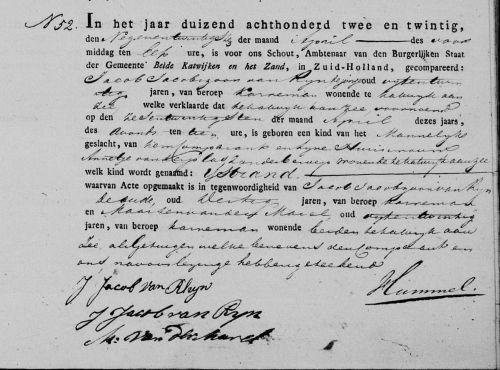 N 52. In het jaar duizend achthonderd twee en twintig,
den Negenentwintigste der maand April des voor
middag ten elf ure, is voor ons Schout, Ambtenaar van den Burgerlijken Staat
der Gemeente Beide Katwijken en het Zand, in Zuid-Holland, gecompareerd:
Jacob Jacobszoon van Ryn oud vyfentwin
tig jaren, van beroep karreman wonende te Catwyk aan
Zee welke verklaarde dat te Catwyk aan Zee voornoemd
op den zesentwintigsten der maand April dezes jaars,
des Avonds ten tien ure, is geboren een kind van het Mannelyk
geslacht, van hem Comparant en zyne Huisvrouw
wonende te Catwyk aan Zee
welk kind word genaamd: Ysbrand.
waarvan Acte opgemaakt is in tegenwoordigheid van Jacob Jacobszoon van Ryn
de oude, oud Dertig jaren, van beroep karreman
en Maarten van der Marel oud vyfentwintig
jaren, van beroep karreman wonende beiden te Catwyk aan
Zee, als getuigen welke benevens den Comparant en
ons na voorlezinge hebben geteekend
J Jacob van Rhyn
Hummel.
J Jacob van Ryn
M: van der Marel